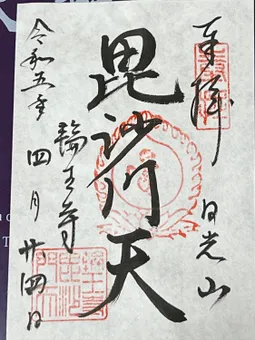 奉拝 日光山
毘沙门天
輪王寺
令和五年 四月 廿四日